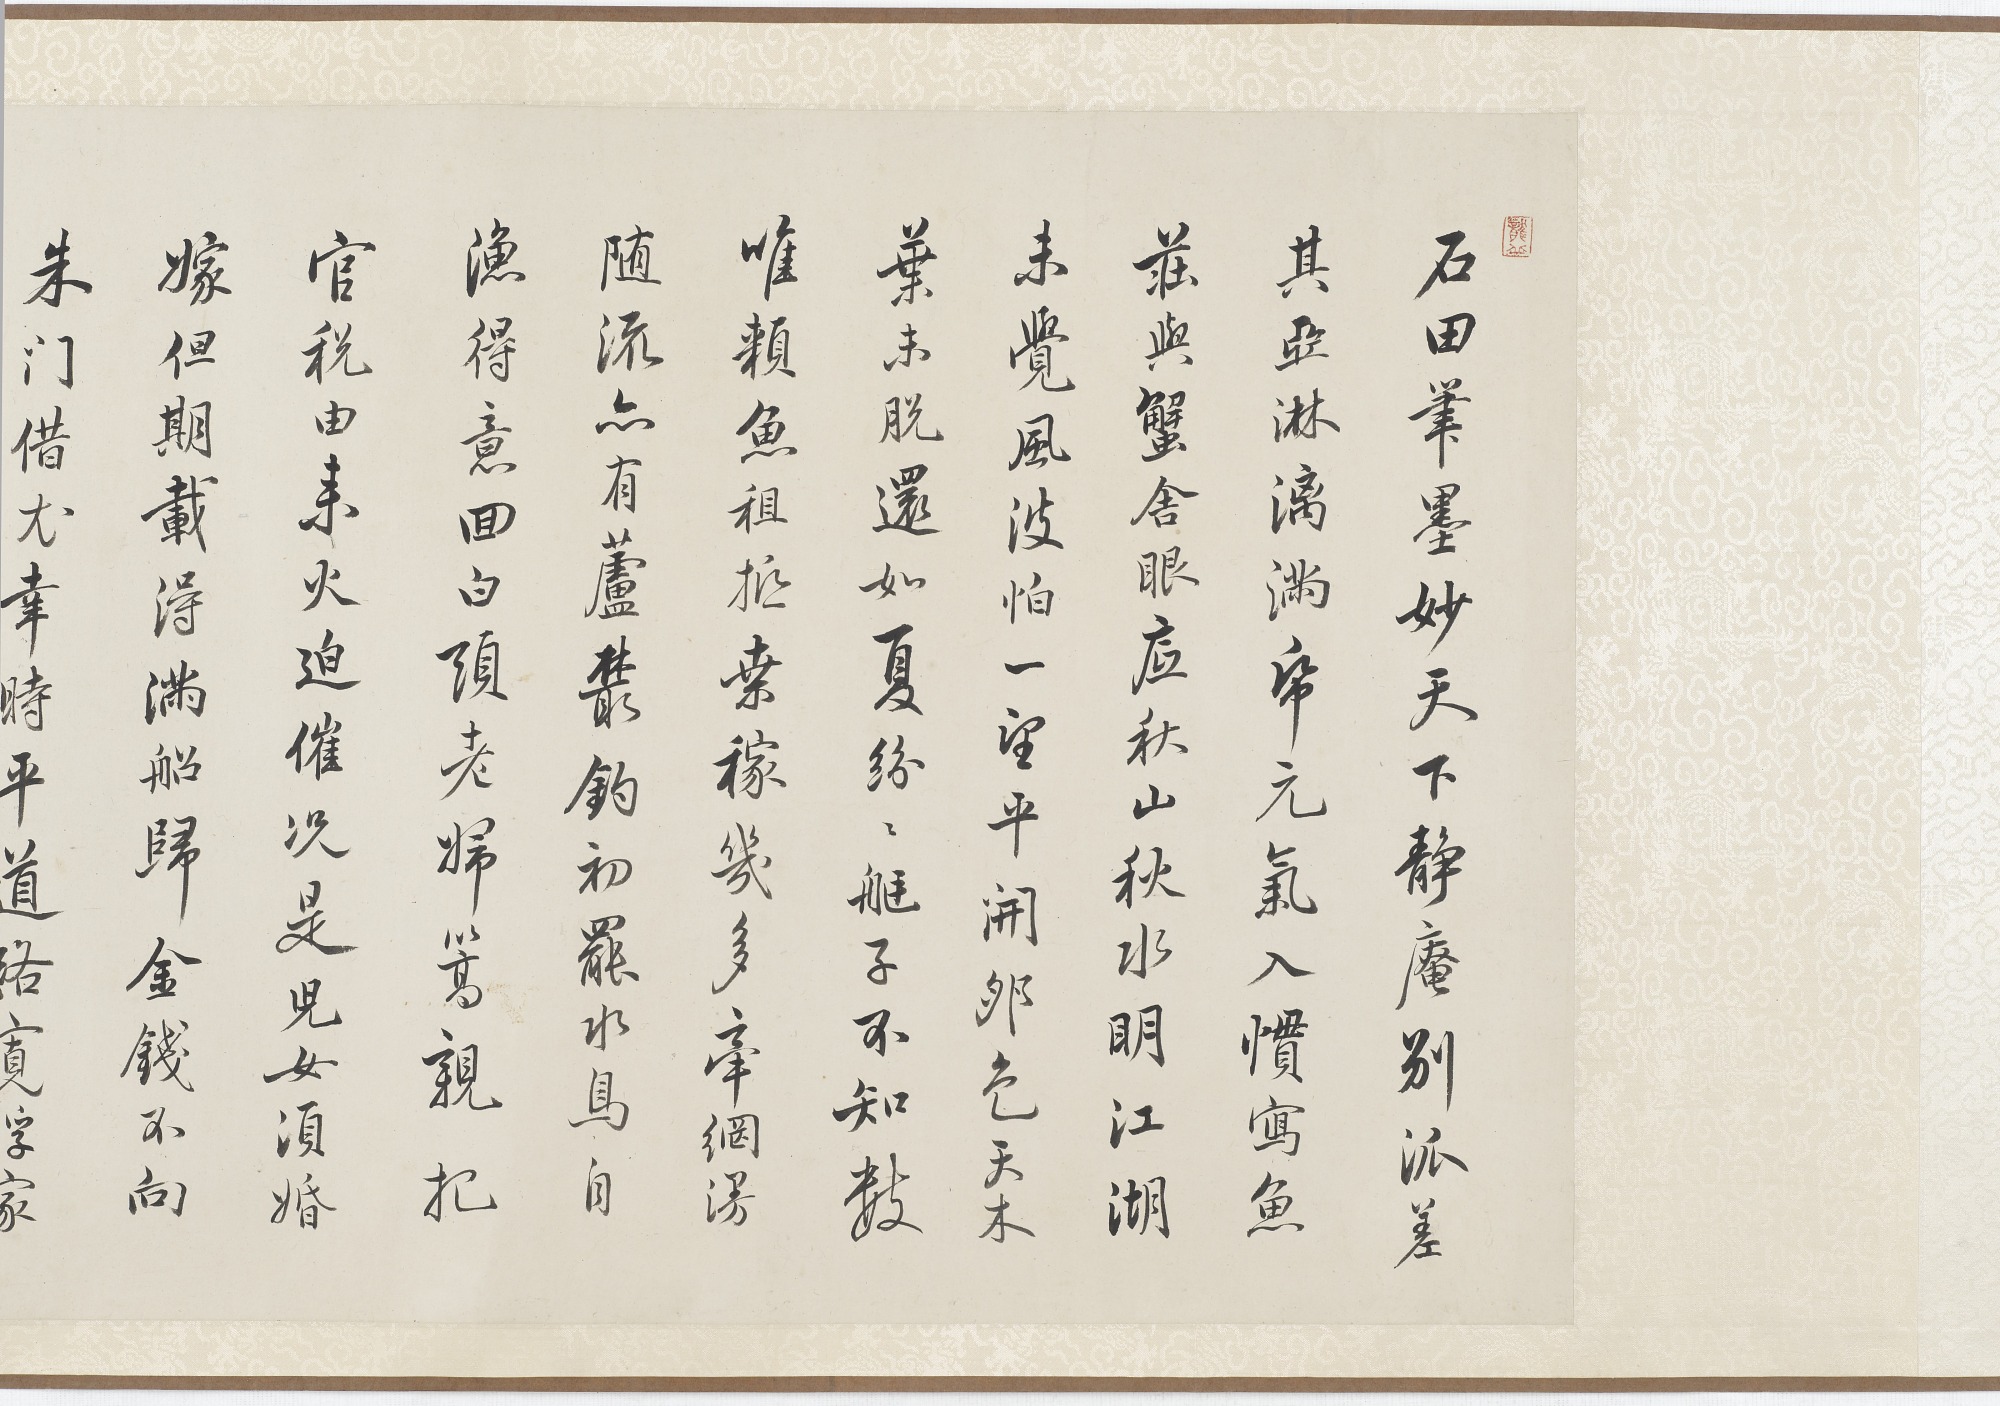 石田筆墨妙天下静庵别派差
其亞淋漓滿帋元氣入慣寫魚
莊與蟹舍眼底秋山秋水明江湖
未覺風波怕一望平開卵色天木
葉未脱還如夏紛〻艇子不知數
唯賴魚租抵桑稼幾多牽網漫
随流亦有蘆叢釣初罷水鳥自
漁得意回白頭老婦篙親把
官税由来火迫催况是児女須婚
嫁但期載得滿船歸金錢不向
朱门借尤幸時平道路寛浮家